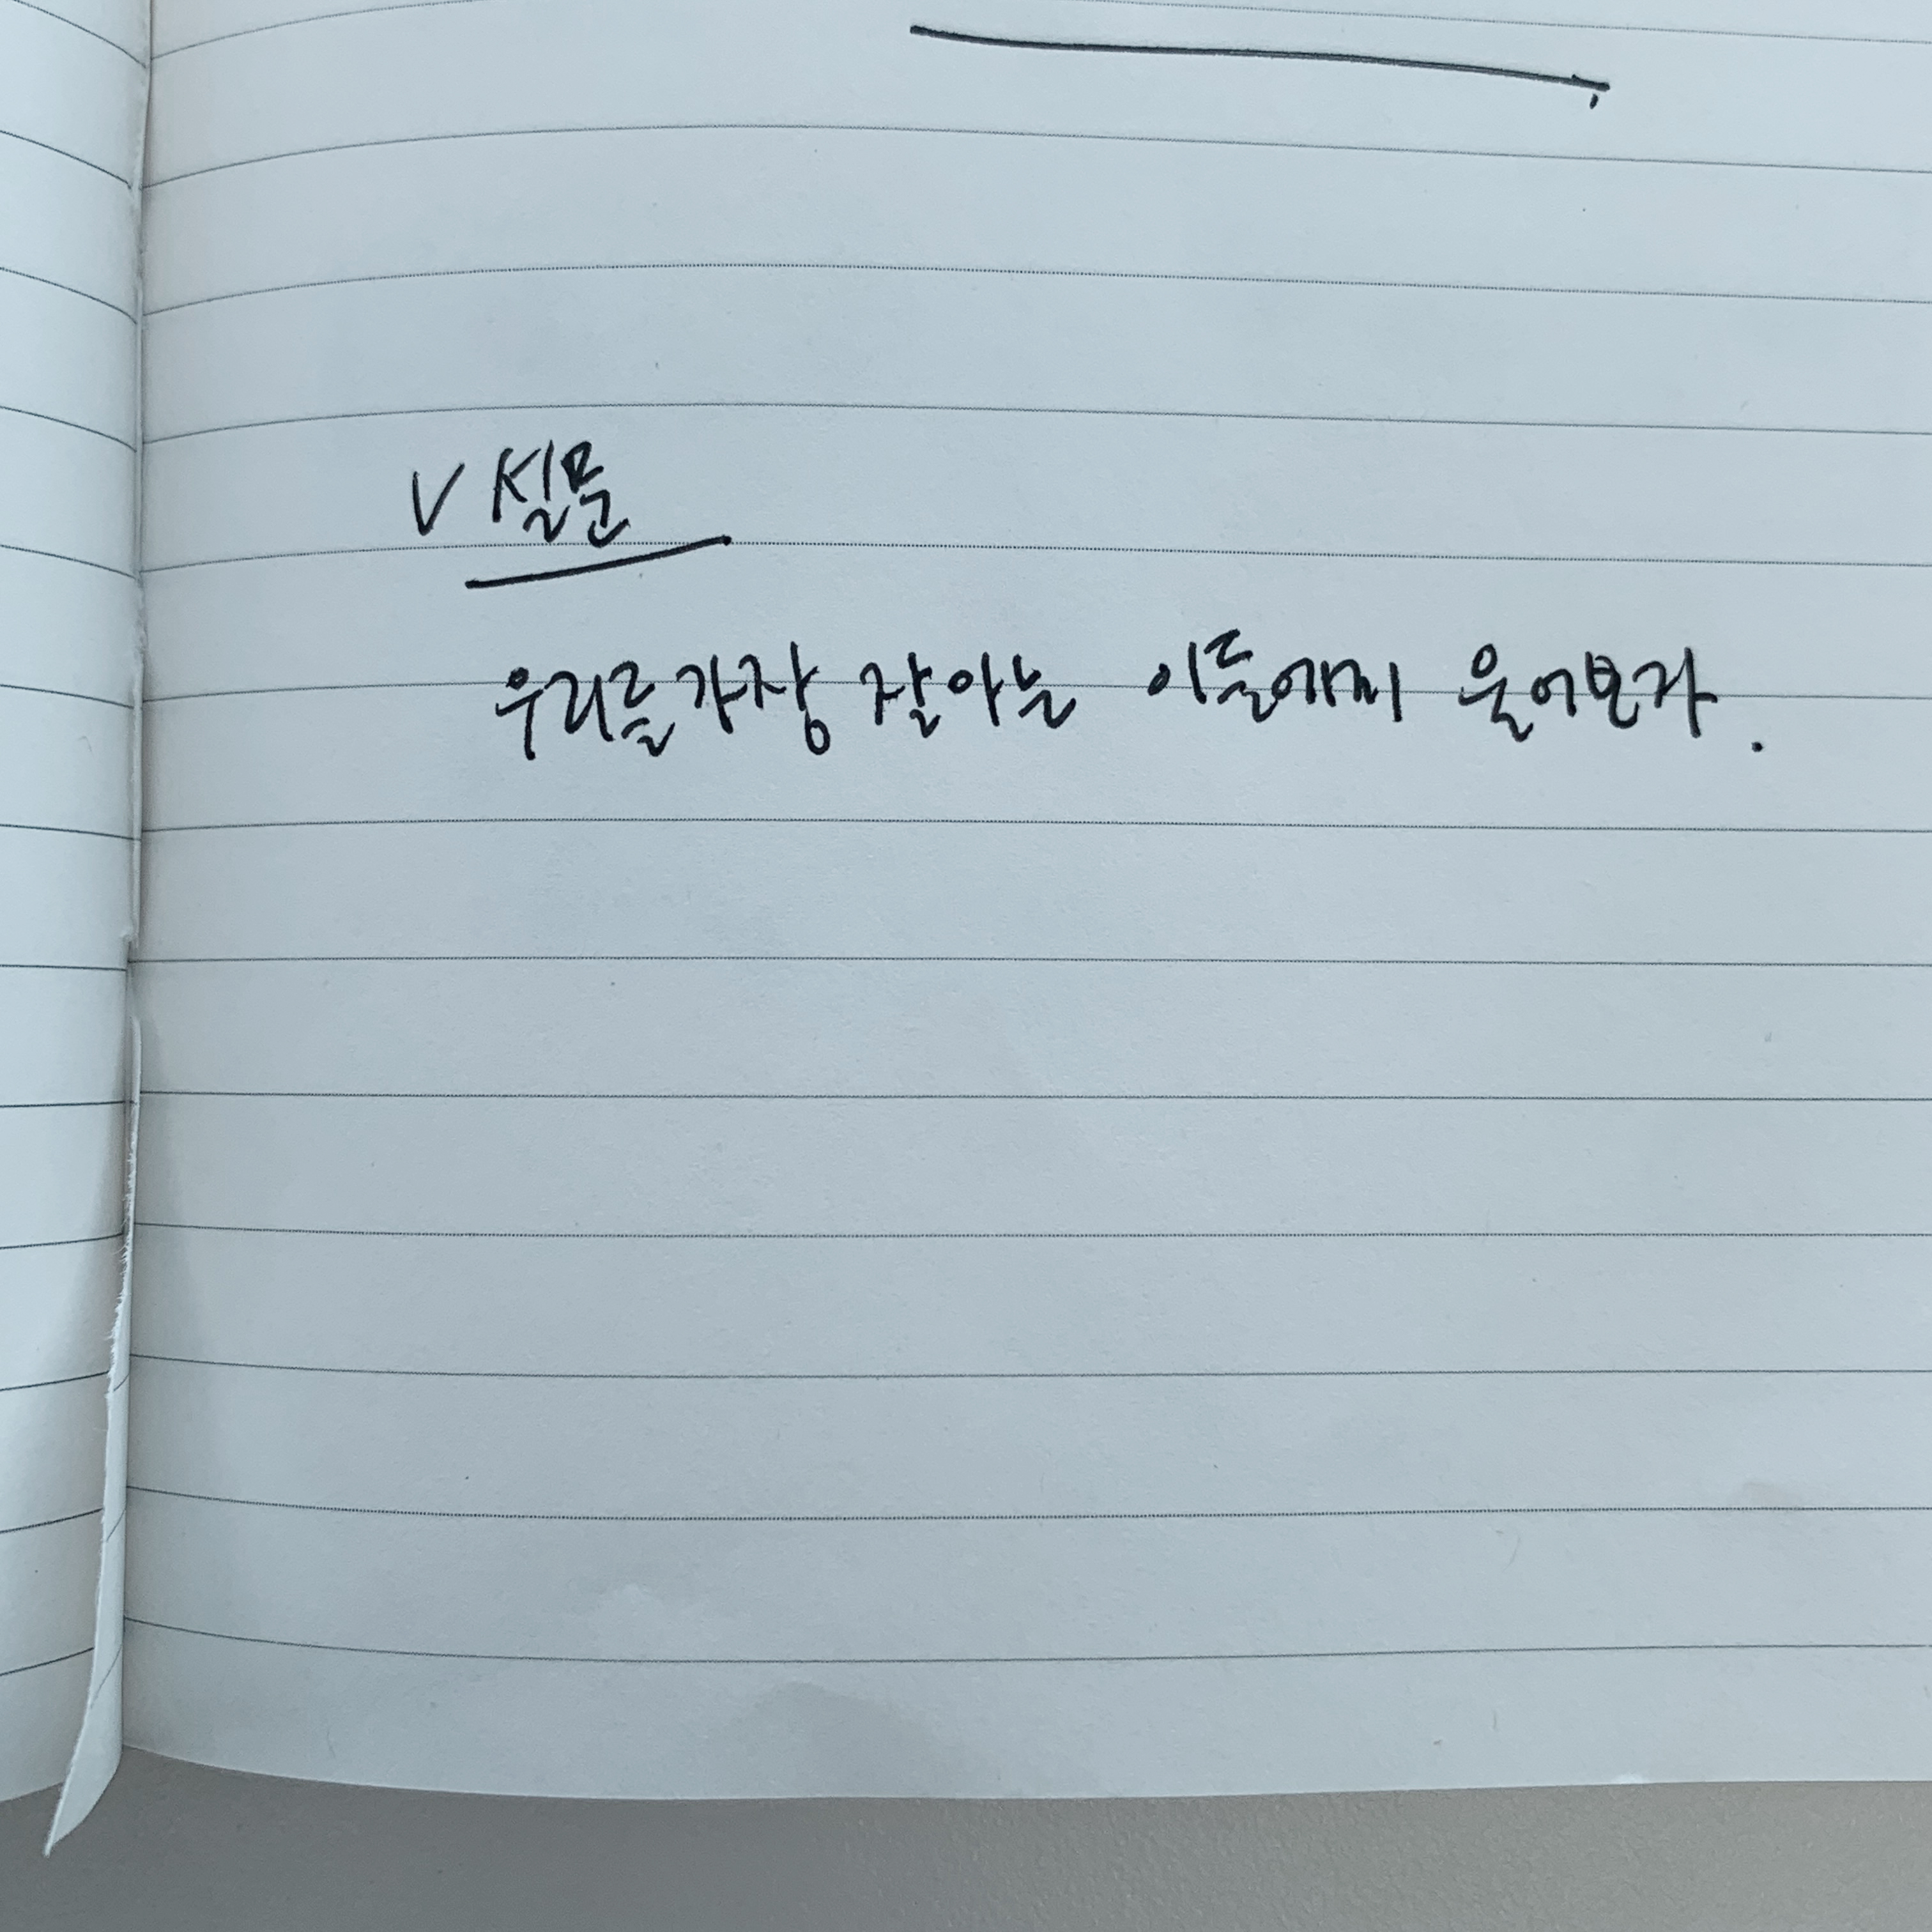 V 설문
우리를 가장 잘 아는 이들에게 물어보자.